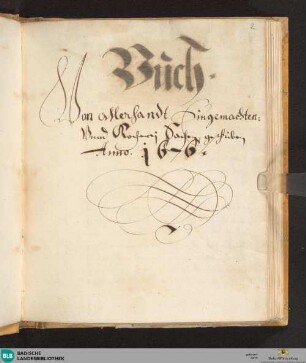 2
Buch.
Von allerhandt Eingemachten:
Vnnd Kocherj Sachen geschriben
Anno. 1676.
BLB BADISCHE
LANDESBIBLIOTHEK